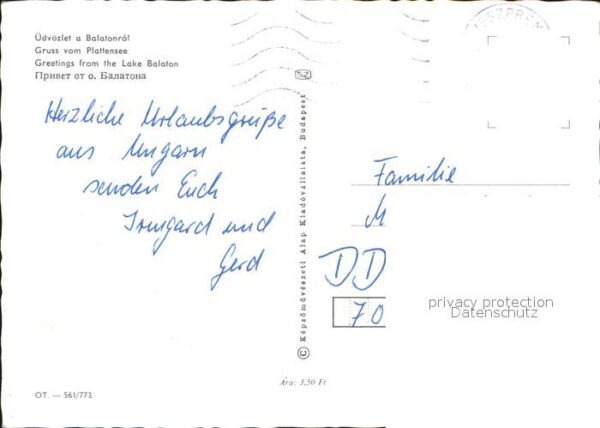 Üdvözlet a Balatonról
Gruss vom Plattensee
Greetings from the Lake Balaton
Привет от о. Балатона
VESZPRÉM
Herzliche Urlaubsgrüße
aus Ungarn
senden Euch
Irmgard und
Gerd
© Képzőművészeti Alap Kiadóvállalata, Budapest
Familie
M
DD
70
privacy protection
Datenschutz
Ára: 3,50 Ft
OT. — 561/773